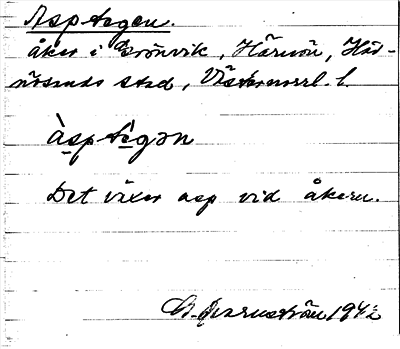 Asptegen.
åker i Grönvik, Härnön, Här-
nösands stad, Västernorrl. l.
àsptègən
Det växer asp vid åkern.
G. Qvarnström 1942